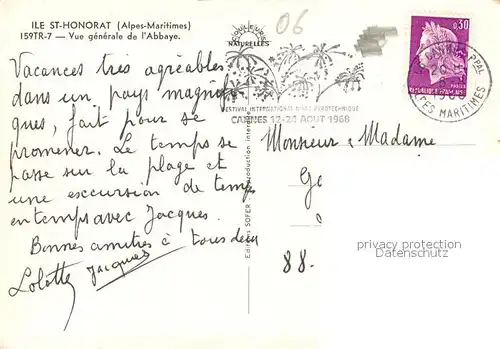 ILE ST-HONORAT (Alpes-Maritimes)
159TR-7 — Vue générale de l'Abbaye.
COULEURS
NATURELLES
06
0,30
POSTES
REPUBLIQUE FRANÇAISE
CANNES PPAL
ALPES MARITIMES
FESTIVAL INTERNATIONAL D'ART PYROTECHNIQUE
CANNES 12-24 AOUT 1968
Vacances très agréables
dans un pays magnifi
ques, fait pour se
promener. Le temps se
passe sur la plage et
une excursion de temps
en temps avec Jacques.
Bonnes amitiés à tous deux
Lolotte Jacques
Editions SOFER - Reproduction interdite
Monsieur & Madame
88.
privacy protection
Datenschutz